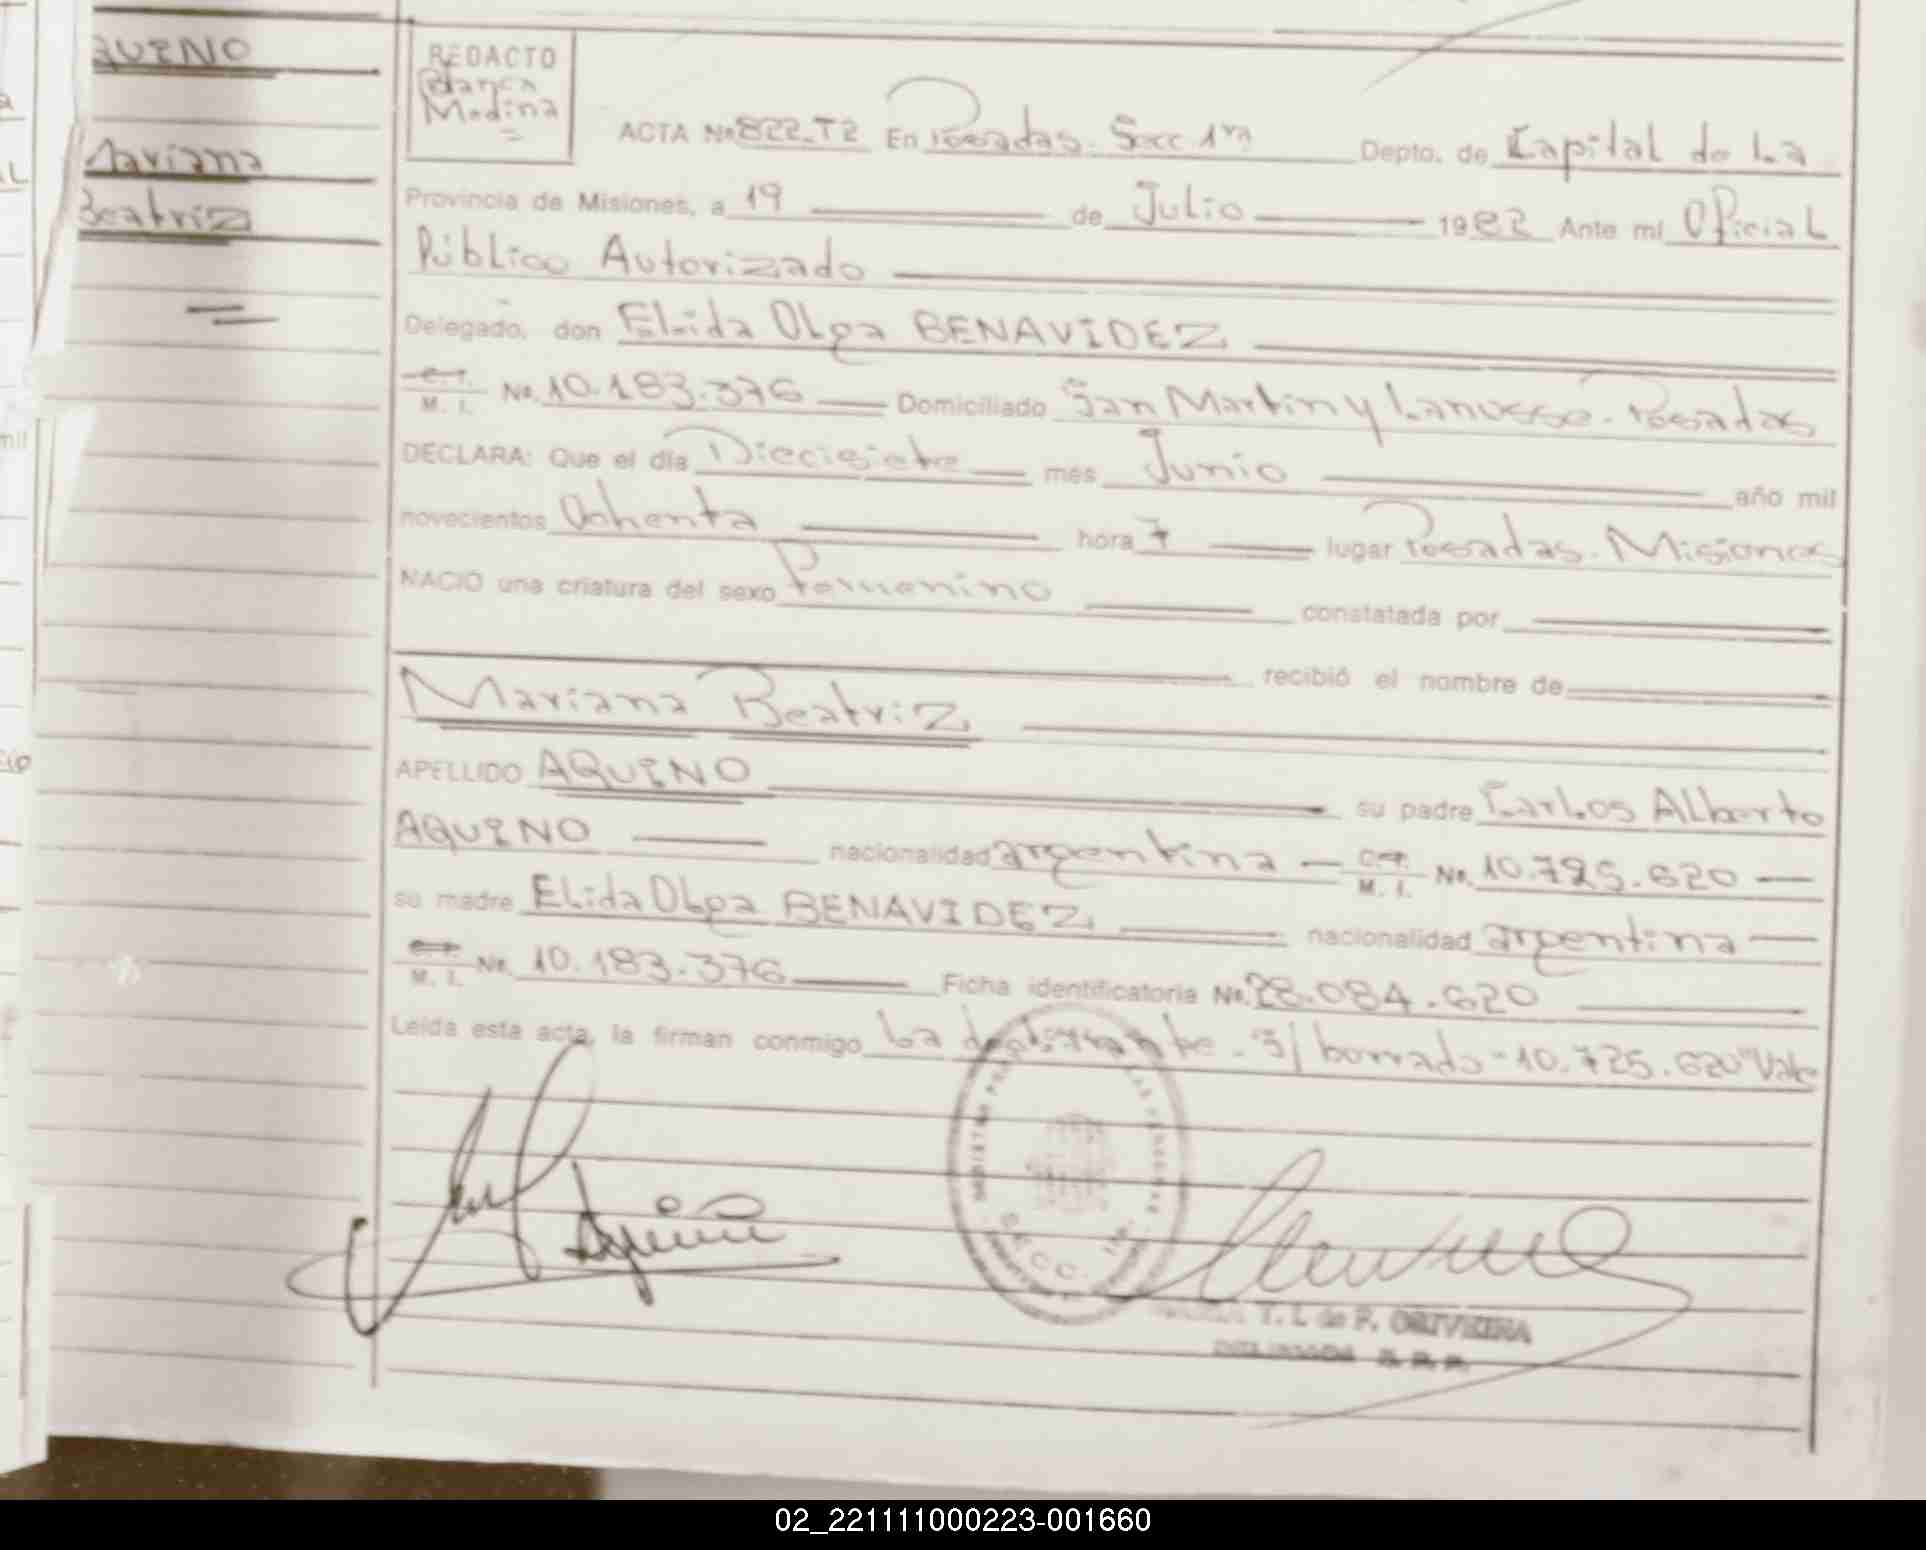 AQUINO
Mariana
Beatriz
REDACTO
Blanca
Medina
ACTA No. 822-T2 En Posadas. Secc 1ra Depto. de Capital de La
Provincia de Misiones, a 19 de Julio 1982 Ante mí Oficial
Público Autorizado
Delegado, don Elida Olga BENAVIDEZ
C.I. M. I. No. 10.183.376 Domiciliado San Martin y Lanusse - Posadas
DECLARA: Que el día Diecisiete mes Junio año mil
novecientos Ochenta hora 7 lugar Posadas. Misiones
NACIO una criatura del sexo Femenino constatada por
recibió el nombre de
Mariana Beatriz
APELLIDO AQUINO su padre Carlos Alberto
AQUINO nacionalidad argentina C.I. M. I. No. 10.725.620
su madre Elida Olga BENAVIDEZ nacionalidad argentina
C.I. M. I. No. 10.183.376 Ficha identificatoria No. 28.084.620
Leída esta acta, la firman conmigo La declarante. S/ borrado "10.725.620" Vale
Aquino
SECC. 1ra.
T. L. de F. OLIVEIRA
DELEGADA
02_221111000223-001660